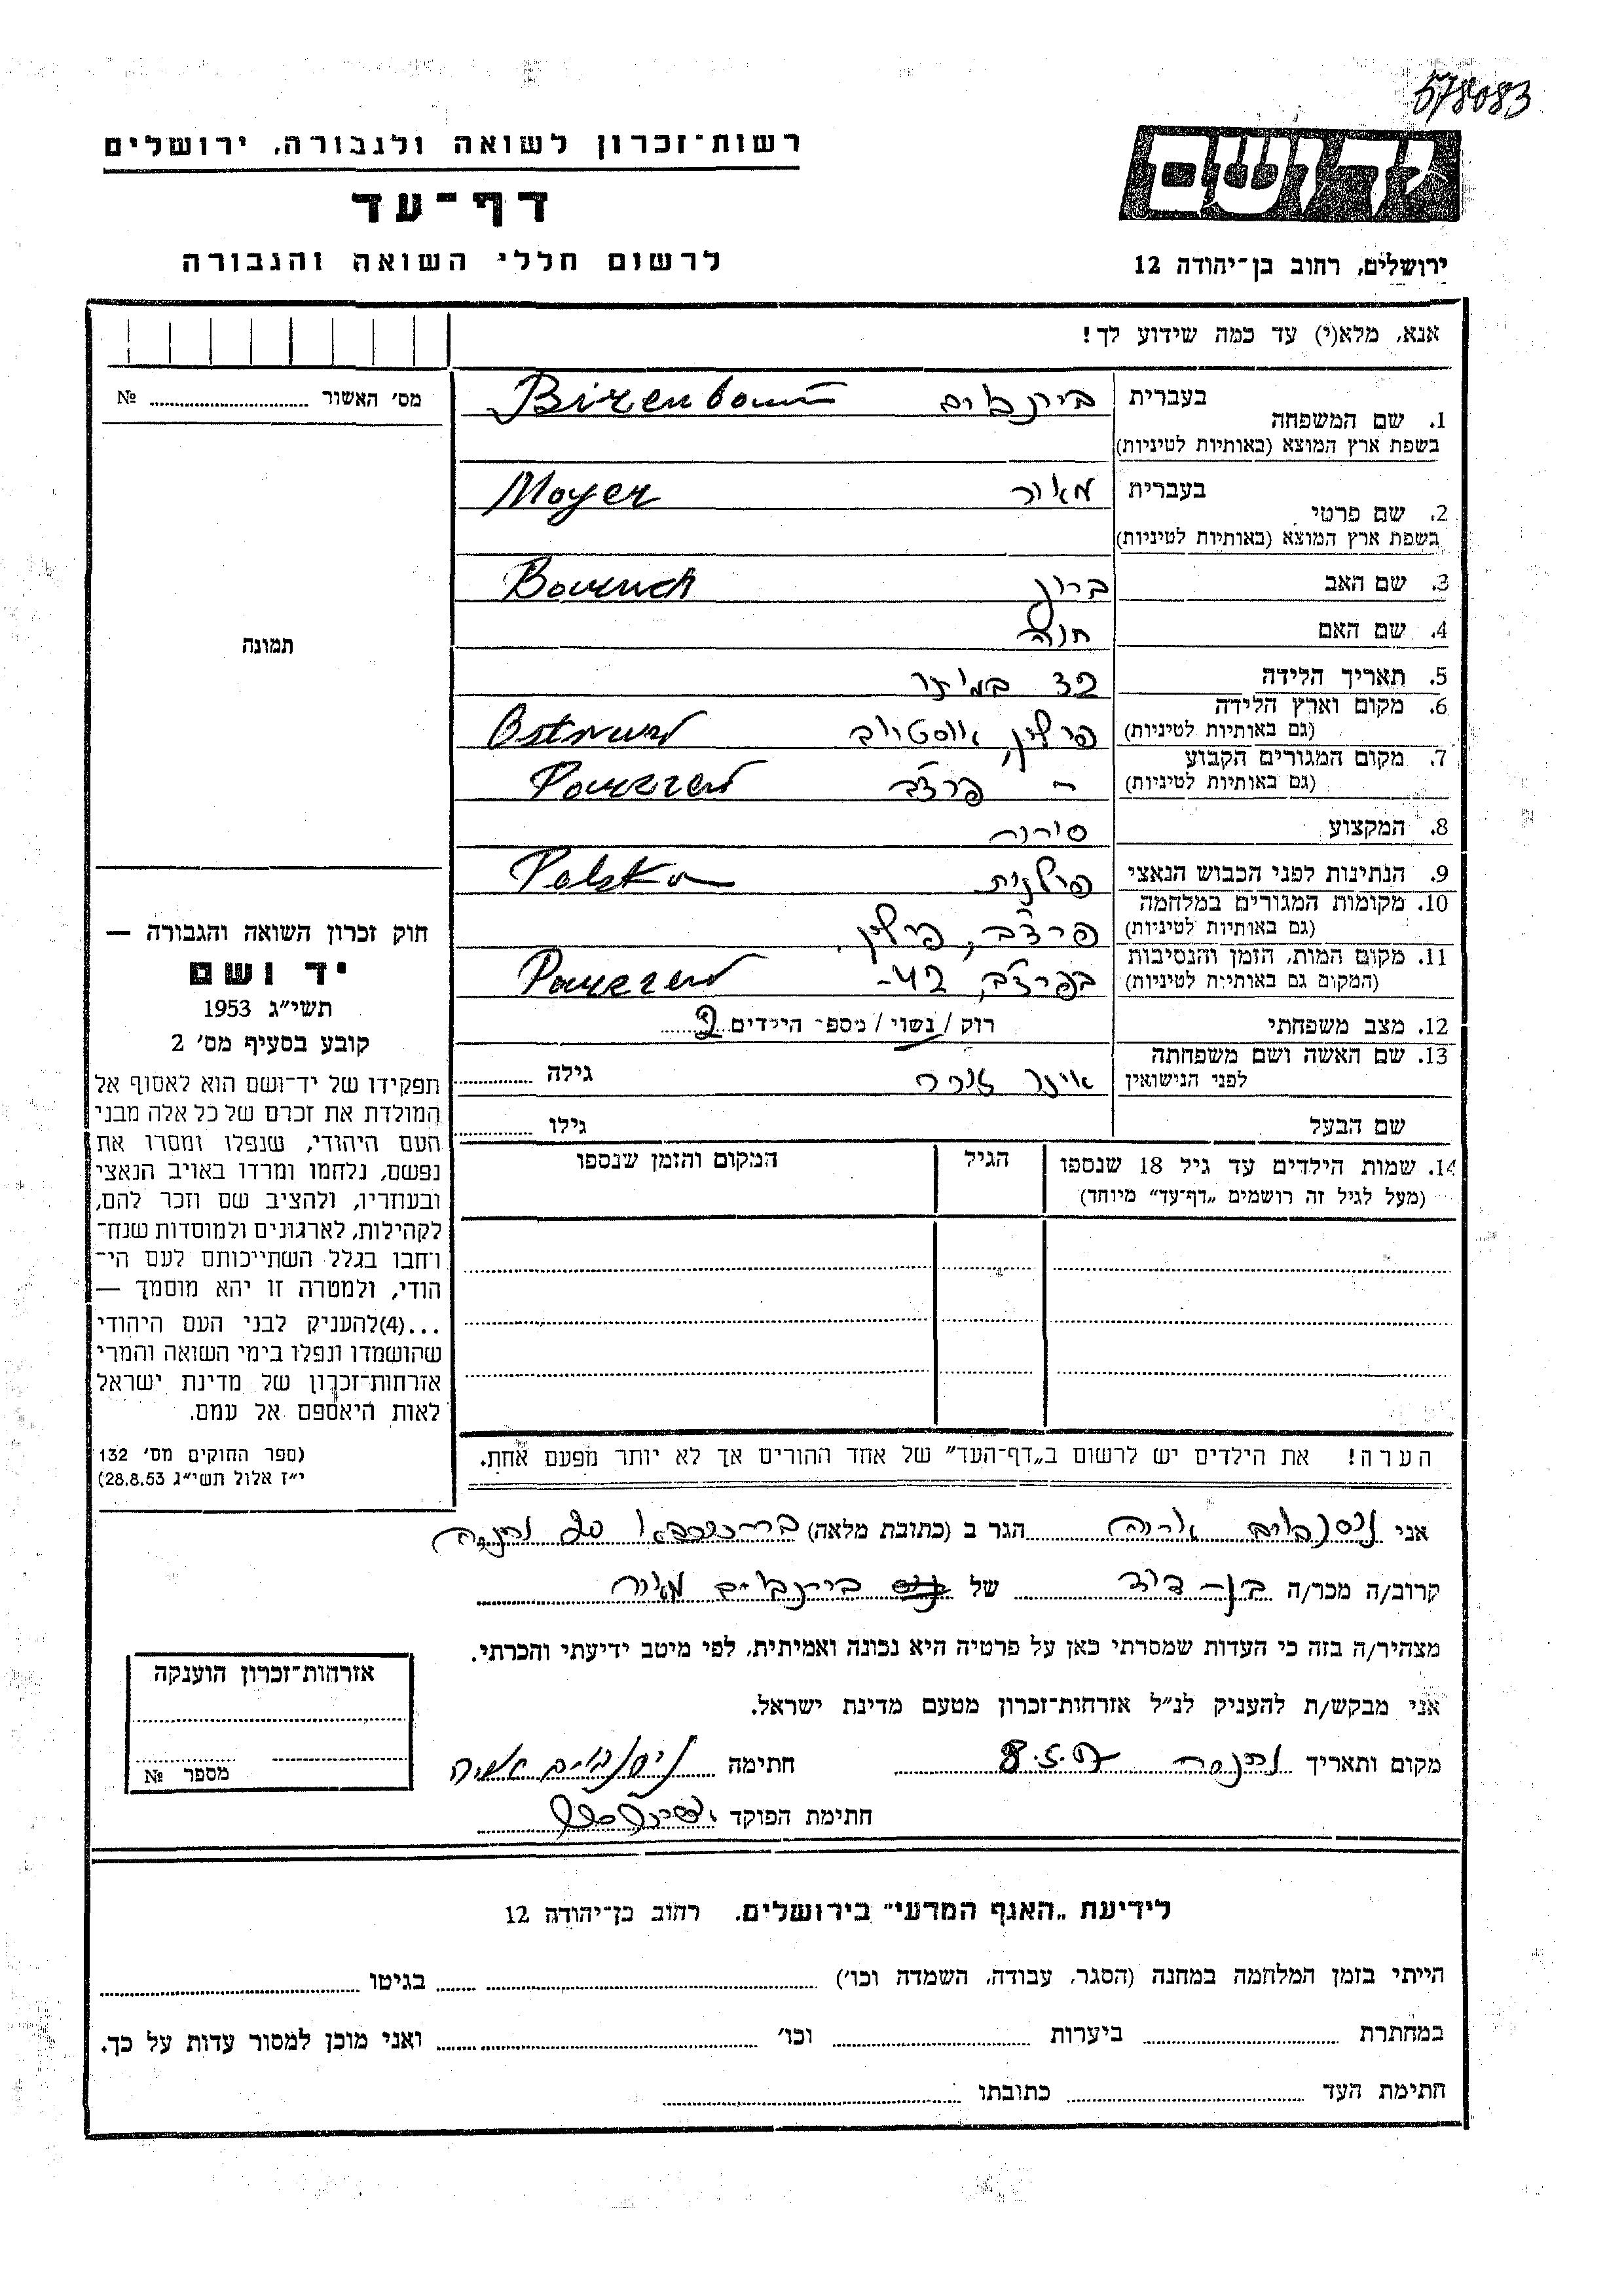 578083
רשות-זכרון לשואה ולגבורה, ירושלים
דף-עד
לרשום חללי השואה והגבורה
ירושלים, רחוב בן-יהודה 12
אנא, מלא(י) עד כמה שידוע לך!
מס' האשור № 
תמונה
חוק זכרון השואה והגבורה —
יד ושם
תשי״ג 1953
קובע בסעיף מס' 2
תפקידו של יד-ושם הוא לאסוף אל
המולדת את זכרם של כל אלה מבני
העם היהודי, שנפלו ומסרו את
נפשם, נלחמו ומרדו באויב הנאצי
ובעוזריו, ולהציב שם וזכר להם,
לקהילות, לארגונים ולמוסדות שנח-
רחבו בגלל השתייכותם לעם הי-
הודי, ולמטרה זו יהא מוסמך —
...(4)להעניק לבני העם היהודי
שהושמדו ונפלו בימי השואה והמרי
אזרחות-זכרון של מדינת ישראל
לאות היאספם אל עמם.
(ספר החוקים מס' 132
י״ז אלול תשי״ג 28.8.53)
בעברית בירנבוים Birenbaum
1. שם המשפחה
בשפת ארץ המוצא (באותיות לטיניות)
בעברית מאיר Moyer
2. שם פרטי
בשפת ארץ המוצא (באותיות לטיניות)
3. שם האב ברוך Bouruch
4. שם האם חנה
5. תאריך הלידה
6. מקום וארץ הלידה
(גם באותיות לטיניות) פולין, אוסטרוב Ostruw
7. מקום המגורים הקבוע
(גם באותיות לטיניות) פרצ'ב
8. המקצוע סוחר
9. הנתינות לפני הכבוש הנאצי פולנית Polska
10. מקומות המגורים במלחמה
(גם באותיות לטיניות) פרצ'ב, פולין.
11. מקום המות, הזמן והנסיבות
(המקום גם באותיות לטיניות) בפרצ'ב, 42-
12. מצב משפחתי רוק / נשוי / מספ- הילדים
13. שם האשה ושם משפחתה
לפני הנישואין גילה
שם הבעל גילו
14. שמות הילדים עד גיל 18 שנספו הגיל המקום והזמן שנספו
(מעל לגיל זה רושמים „דף-עד״ מיוחד)
הערה! את הילדים יש לרשום ב„דף-העד״ של אחד ההורים אך לא יותר מפעם אחת.
אני ניסנבוים אריה הגר ב (כתובת מלאה) נתניה
קרוב/ה מכר/ה בן-דוד של בירנבוים מאיר
מצהיר/ה בזה כי העדות שמסרתי כאן על פרטיה היא נכונה ואמיתית, לפי מיטב ידיעתי והכרתי.
אני מבקש/ת להעניק לנ״ל אזרחות-זכרון מטעם מדינת ישראל.
מקום ותאריך נתניה חתימה ניסנבוים אריה
חתימת הפוקד
אזרחות-זכרון הוענקה
מספר №
לידיעת „האגף המדעי״ בירושלים, רחוב בן-יהודה 12
הייתי בזמן המלחמה במחנה (הסגר, עבודה, השמדה וכו') בגיטו
במחתרת ביערות וכו' ואני מוכן למסור עדות על כך.
חתימת העד כתובתו